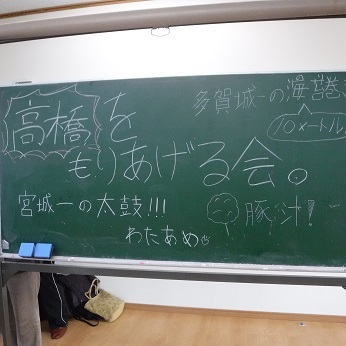 高橋を
もりあげる会。
多賀城一の海苔巻
10メートル
宮城一の太鼓!!!
わたあめ
豚汁!